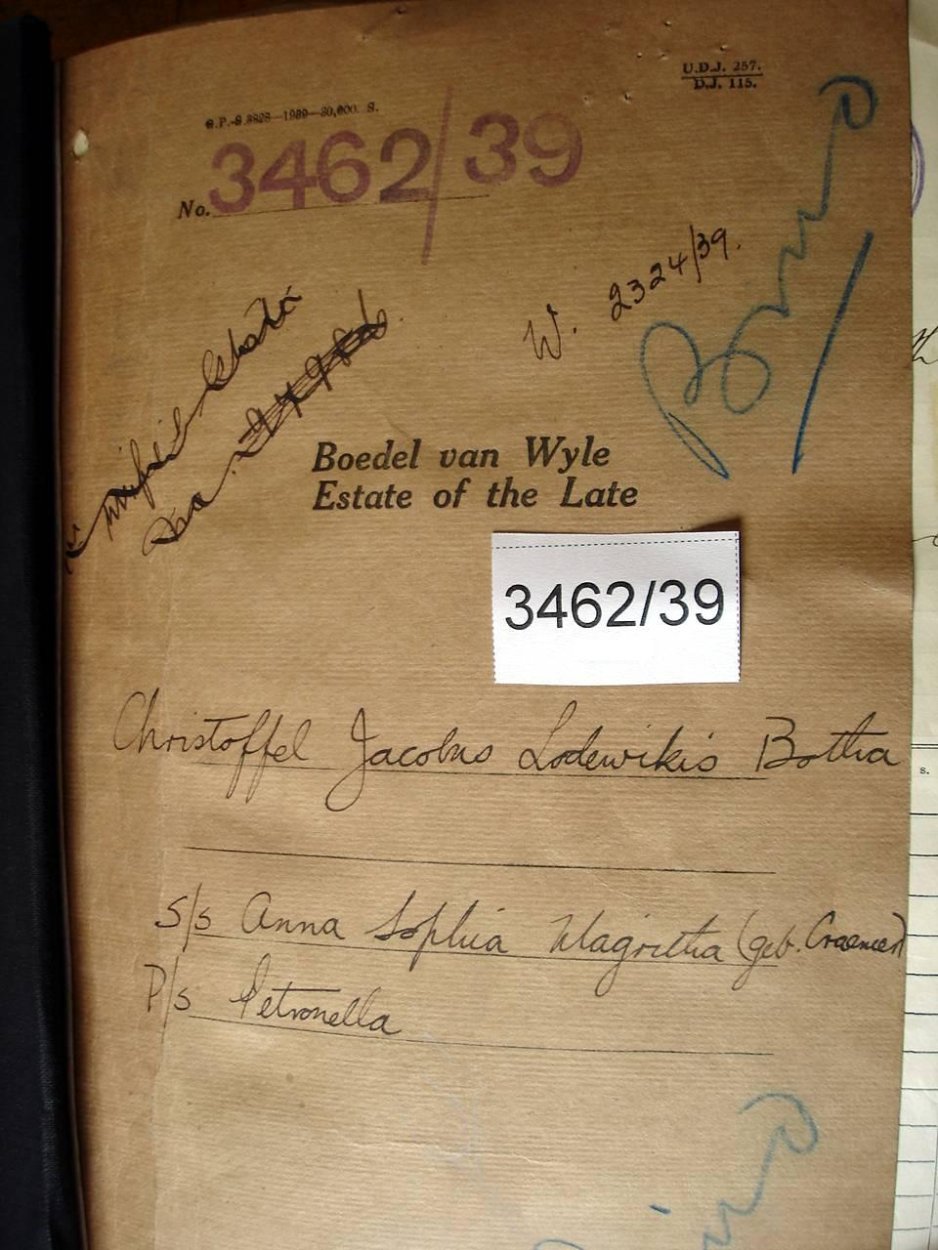 U.D.J. 257.
D.J. 115.
G.P.-S.3828—1939—30,000. S.
No. 3462/39
W. 2324/39.
Boedel van Wyle
Estate of the Late
3462/39
Christoffel Jacobus Lodewikis Botha
S/s Anna Sophia Magritha (geb. Craemer)
P/s Petronella
s.